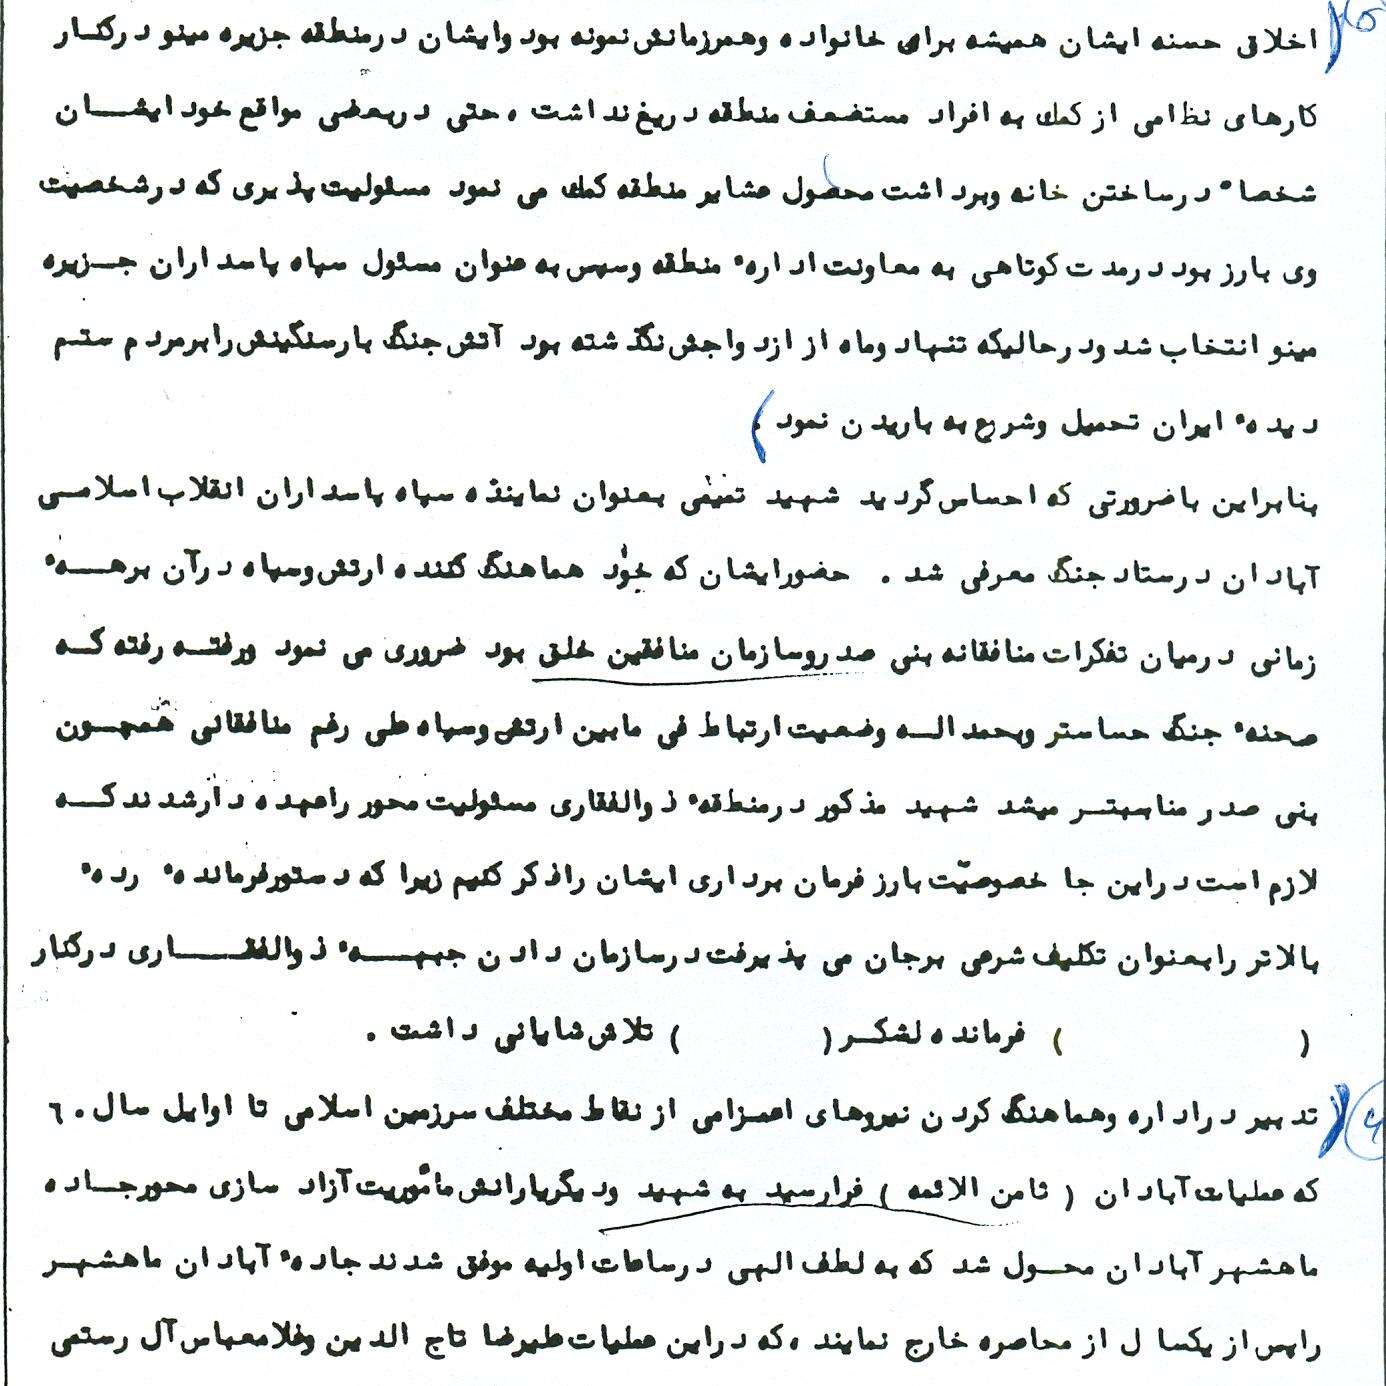 اخلاق حسنه ایشان همیشه برای خانواده وهمرزمانش نمونه بود وایشان درمنطقه جزیره مینو درکنار
کارهای نظامی از کمک به افراد مستضعف منطقه دریغ نداشت ، حتی دربعضی مواقع خود ایشان
شخصاً درساختن خانه وبرداشت محصول عشایر منطقه کمک می نمود مسئولیت پذیری که درشخصیت
وی بارز بود درمدت کوتاهی به معاونت ادارهٔ منطقه وسپس به عنوان مسئول سپاه پاسداران جزیره
مینو انتخاب شد ودرحالیکه تنهادوماه از ازدواجش نگذشته بود آتش جنگ بارسنگینش رابرمردم ستم
دیدهٔ ایران تحمیل وشرع به باریدن نمود .
بنابراین باضرورتی که احساس گردید شهید بعنوان نماینده سپاه پاسداران انقلاب اسلامی
آبادان درستاد جنگ معرفی شد . حضورایشان که خود هماهنگ کننده ارتش وسپاه درآن برههٔ
زمانی درمیان تفکرات منافقانه بنی صدروسازمان منافقین خلق بود ضروری می نمود ورفته رفته که
صحنهٔ جنگ حساستر وبحمداله وضعیت ارتباط فی مابین ارتش وسپاه علی رغم منافقانی همچون
بنی صدر مناسبتر میشد شهید مذکور درمنطقهٔ ذوالفقاری مسئولیت محور راعهده دارشدند که
لازم است دراین جا خصوصیّت بارز فرمان برداری ایشان راذکر کنیم زیرا که دستورفرماندهٔ ردهٔ
بالاتر رابعنوان تکلیف شرعی برجان می پذیرفت درسازمان دادن جبههٔ ذوالفقاری درکنار
(                ) فرمانده لشکر (            ) تلاش شایانی داشت .
تدبیر دراداره وهماهنگ کردن نیروهای اعزامی از نقاط مختلف سرزمین اسلامی تا اوایل سال ۶۰
که عملیات آبادان ( ثامن الائمه ) فرارسید به شهید ودیگریارانش مأموریت آزاد سازی محورجاده
ماهشهر آبادان محول شد که به لطف الهی درساعات اولیه موفق شدند جادهٔ آبادان ماهشهر
راپس از یکسال از محاصره خارج نمایند ، که دراین عملیات علیرضا تاج الدین وغلامعباس آل رستمی